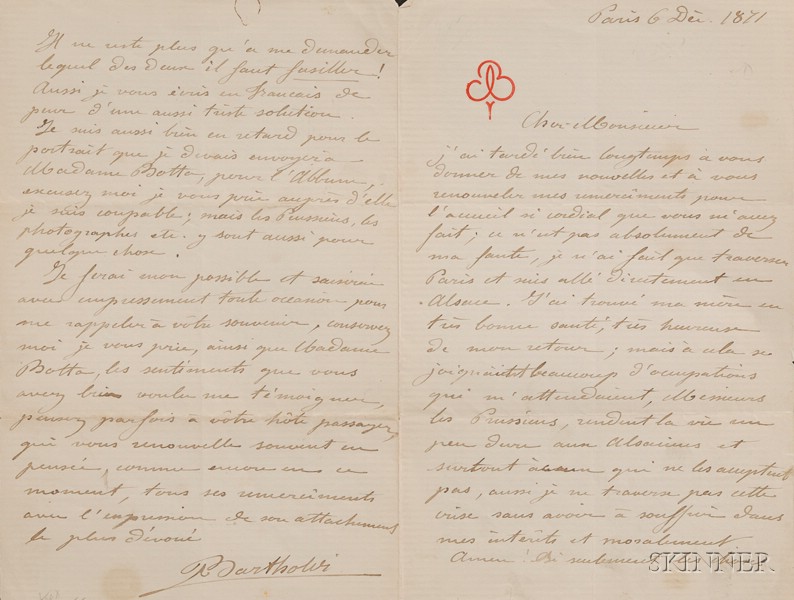 Paris 6 Déc. 1871
Cher Monsieur
j'ai tardé bien longtemps à vous
donner de mes nouvelles et à vous
renouveler mes remerciments pour
l'accueil si cordial que vous m'avez
fait; ce n'est pas absolument de
ma faute, je n'ai fait que traverser
Paris et suis allé directement en
Alsace. J'ai trouvé ma mère en
très bonne santé, très heureuse
de mon retour; mais à cela se
joignaient beaucoup d'ocupations
qui m'attendaient, Messieurs
les Prussiens, rendent la vie un
peu dure aux Alsaciens et
surtout à ceux qui ne les acceptent
pas, aussi je ne traverse pas cette
crise sans avoir à souffrir dans
mes intérêts et moralement.
Amen! Si seulement
Il ne reste plus qu'à me demander
lequel des deux il faut fusiller!
Aussi je vous écris en francais de
peur d'une aussi triste solution.
Je suis aussi bien en retard pour le
portrait que je devais envoyer à
Madame Botta, pour l'Album,
excusez moi je vous prie auprès d'elle
je suis coupable; mais les Prussiens, les
photographes etc. y sont aussi pour
quelque chose.
Je ferai mon possible et saisirai
avec empressement toute occasion pour
me rappeler à vôtre souvenir, conservez
moi je vous prie, ainsi que Madame
Botta, les sentiments que vous
avez bien voulu me témoigner,
pensez parfois à vôtre hôte passager,
qui vous renouvelle souvent en
pensée, comme encore en ce
moment, tous ses remerciments
avec l'expression de son attachement
le plus dévoué
Bartholdi
SKINNER